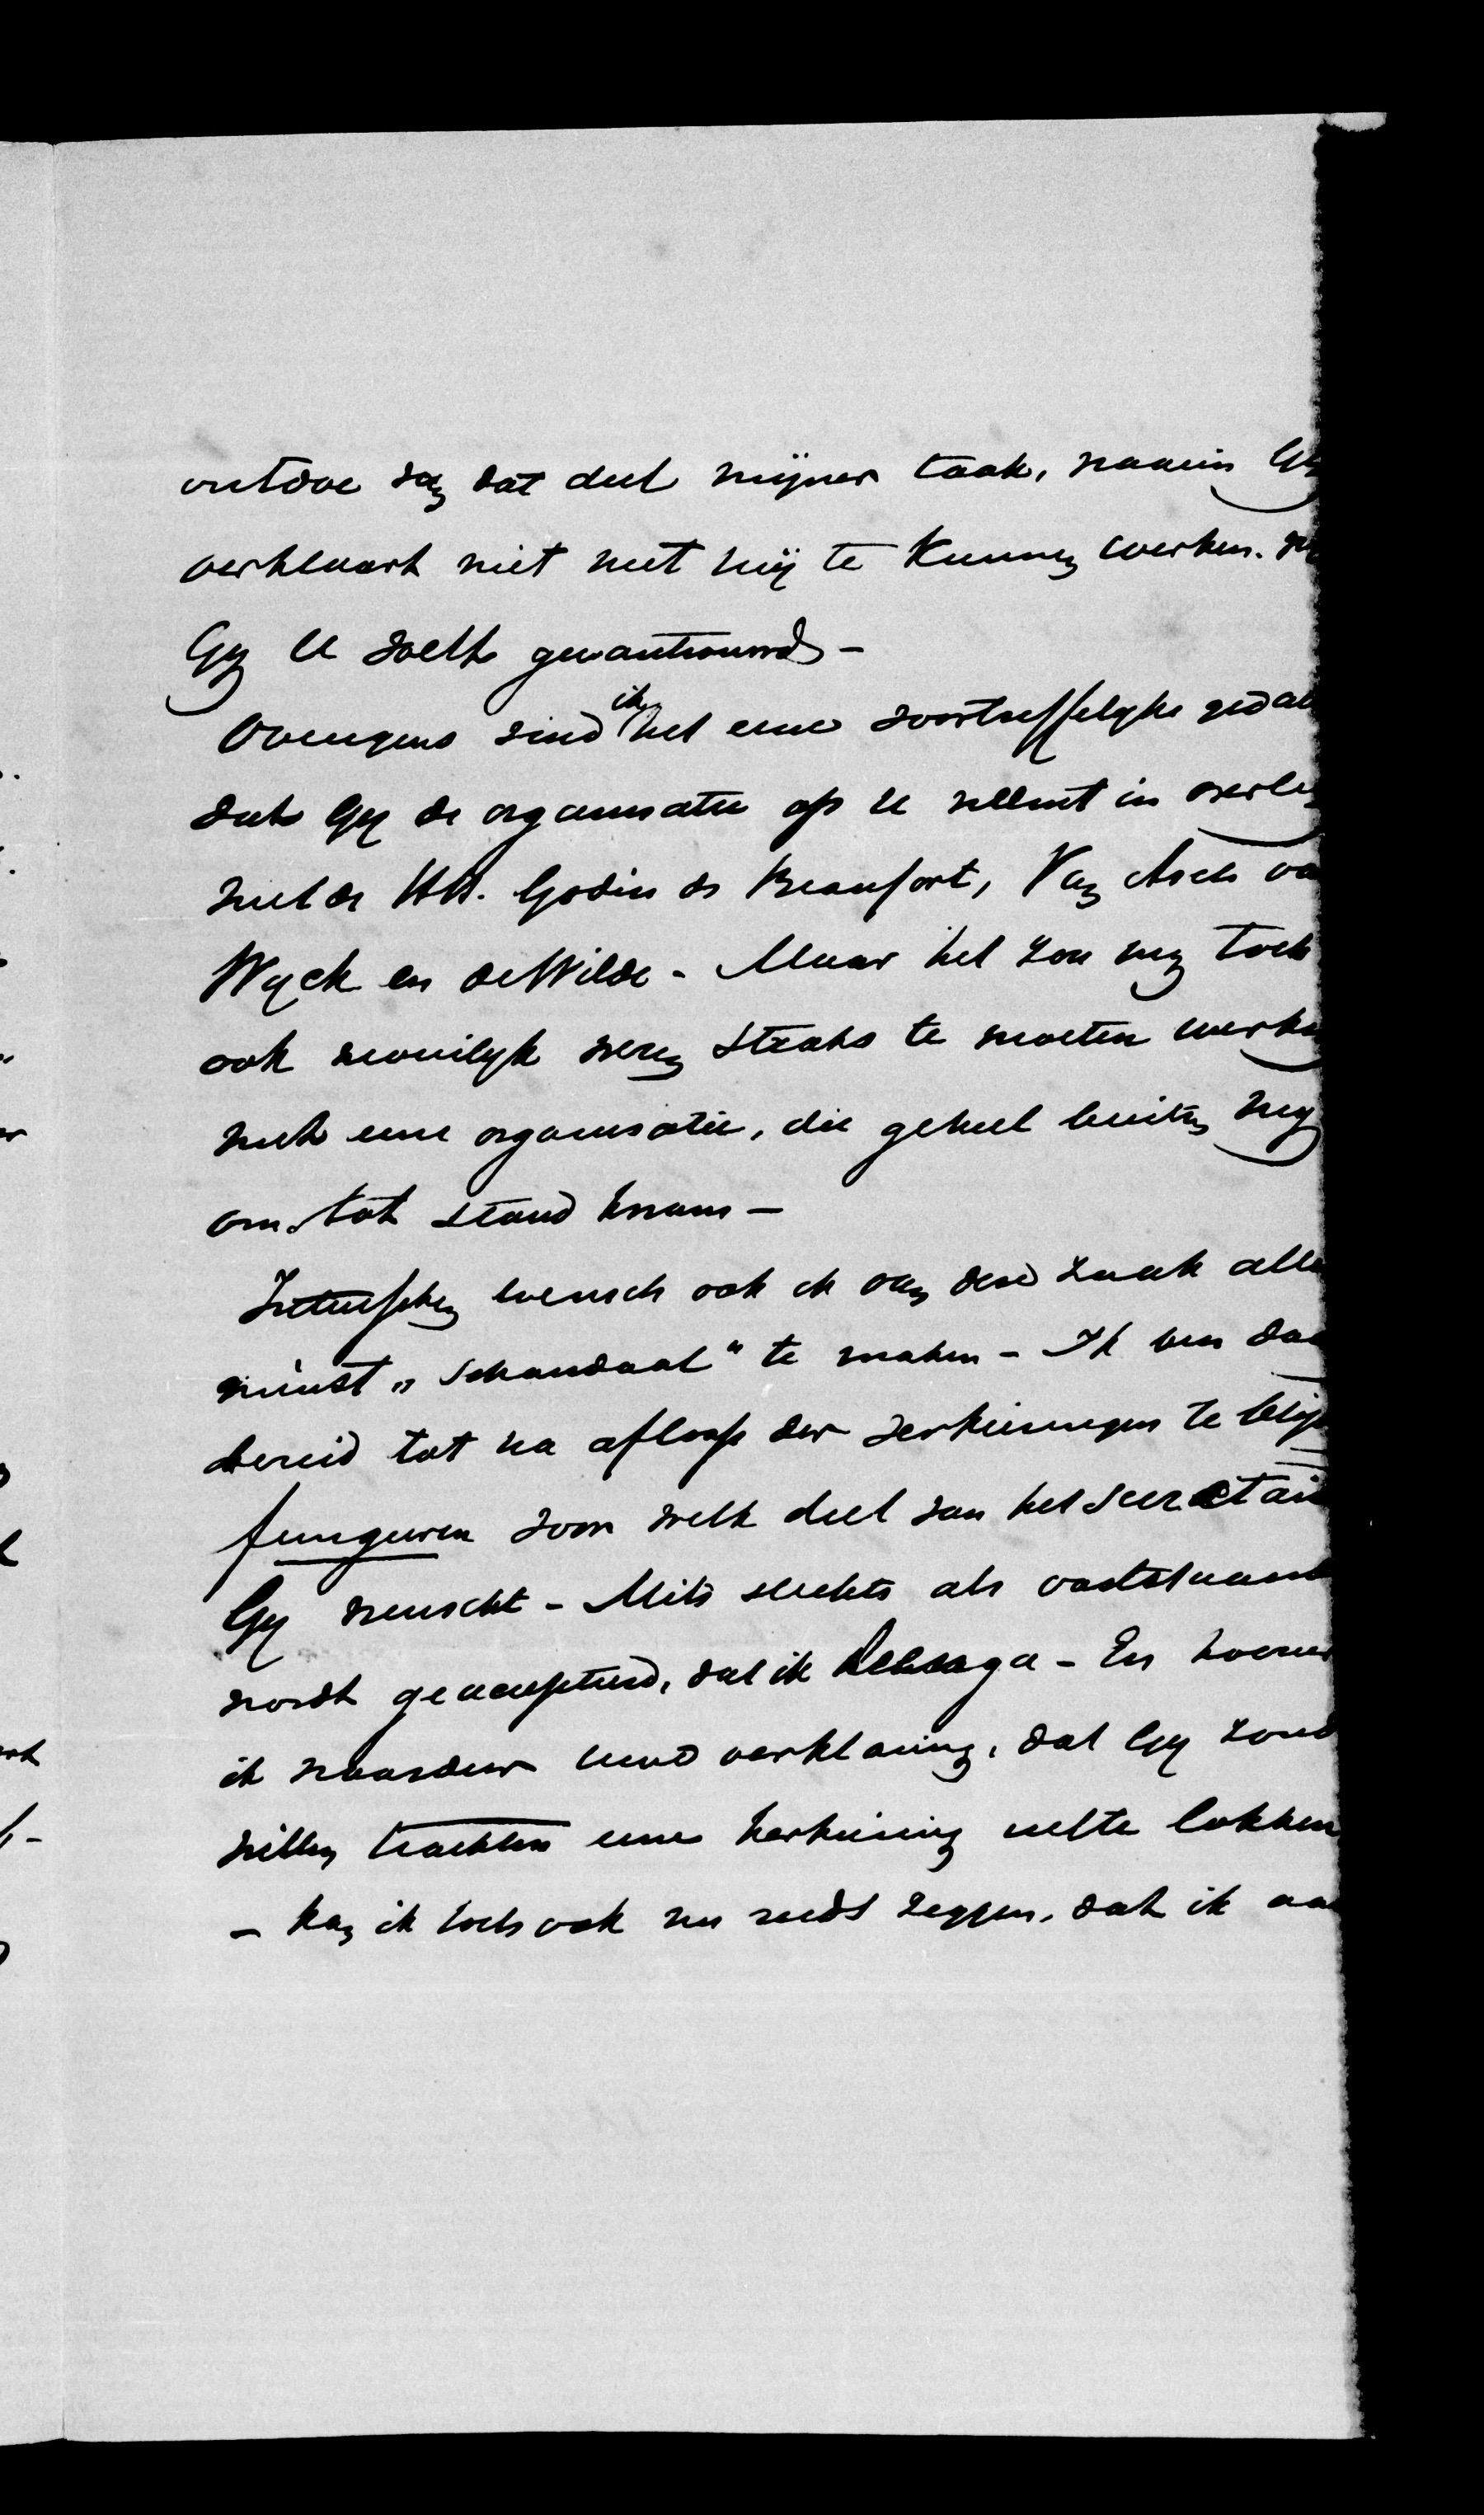 ontdoe van dat deel mijner taak, waarin Gy
verklaart niet met mij te kunnen werken.
Gy U zelf gewantrouwd -
Overigens vind ik het eene voortreffelyke gedac
dat Gy de organisatie op U neemt in overleg
met de HH. Godin de Beaufort, Van Asch va
Wyck en de Wilde - Maar het zou my toch
ook moeilyk vallen straks te moeten werken
met eene organisatie, die geheel buiten my
om tot stand kwam -
Intusschen wensch ook ik van deze zaak aller
minst „schandaal" te maken - Ik ben daa
bereid tot na afloop der verkiezingen te blijv
fungeeren voor welk deel van het secretari
Gy wenscht - Mits slechts als vaststaand
wordt geaccepteerd, dat ik daarna ga - En hoewel
ik waardeer uwe verklaring, dat Gy zoud
willen trachten eene herkiezing uit te lokken
- kan ik toch ook nu reeds zeggen, dat ik aa